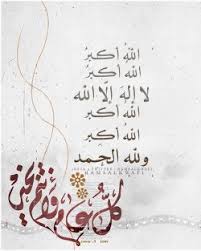 الله أكبر
الله أكبر
لا إله إلا الله
الله أكبر
الله أكبر
ولله الحمد
كل عام وأنتم بخير